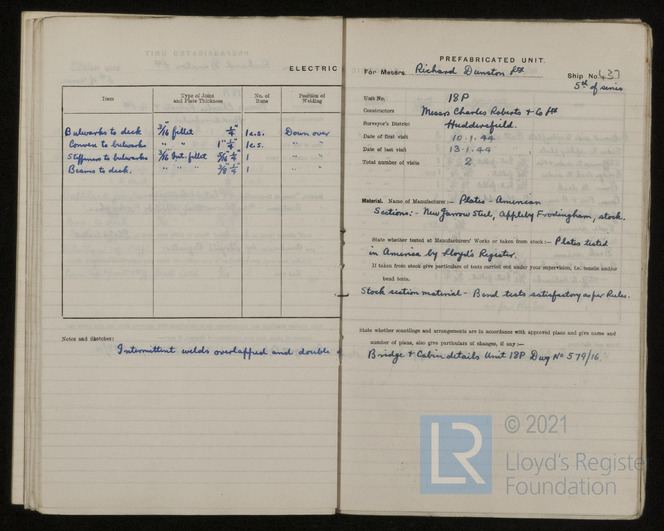 ELECTRIC
Item
Type of Joint and Plate Thickness
No. of Runs
Position of Welding
Bulwarks to deck 3/16 fillet 1/4" 1 e.s. Down over
Convex to bulwarks " " 1" 1/4" 1 e.s. " "
Stiffeners to bulwarks 3/16 Int. fillet 5/16" 1/4" 1 " "
Beams to deck. " " " 3/8" 1/4" 1 " "
Notes and Sketches:
Intermittent welds overlapped and double
PREFABRICATED UNIT.
For Messrs. Richard Dunston Ltd Ship No. 437
5th of series
Unit No. 18P
Constructors Messrs Charles Roberts & Co Ltd
Surveyor's District Huddersfield.
Date of first visit 10.1.44
Date of last visit 13.1.44
Total number of visits 2
Material. Name of Manufacturer:— Plates - American
Sections:- New Jarrow Steel, Appleby Frodingham, stock.
State whether tested at Manufacturers' Works or taken from stock:— Plates tested
in America by Lloyd's Register.
If taken from stock give particulars of tests carried out under your supervision, i.e. tensile and/or
bend tests.
Stock section material - Bend tests satisfactory as per Rules.
State whether scantlings and arrangements are in accordance with approved plans and give name and
number of plans, also give particulars of changes, if any:—
Bridge & Cabin details Unit 18P Dwg No 579/16.
© 2021
LR
Lloyd's Register
Foundation